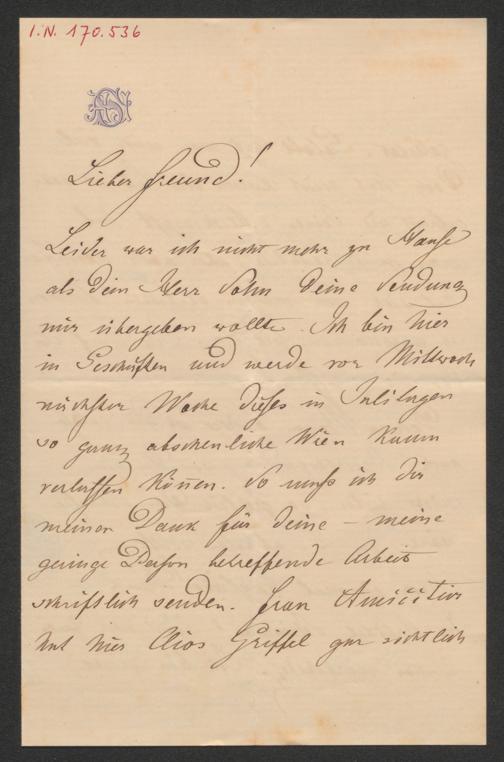 I.N. 170.536
Lieber Freund!
Leider war ich nicht mehr zu Hause
als dein Herr Sohn deine Sendung
mir übergeben wollte. Ich bin hier
in Geschäften und werde vor Mittwoch
nächster Woche dieses in Julitagen
so ganz abscheuliche Wien kaum
verlassen können. So muß ich dir
meinen Dank für deine – meine
geringe Person betreffende Arbeit
schriftlich senden. Frau
hat hier Clios Griffel gar sichtlich